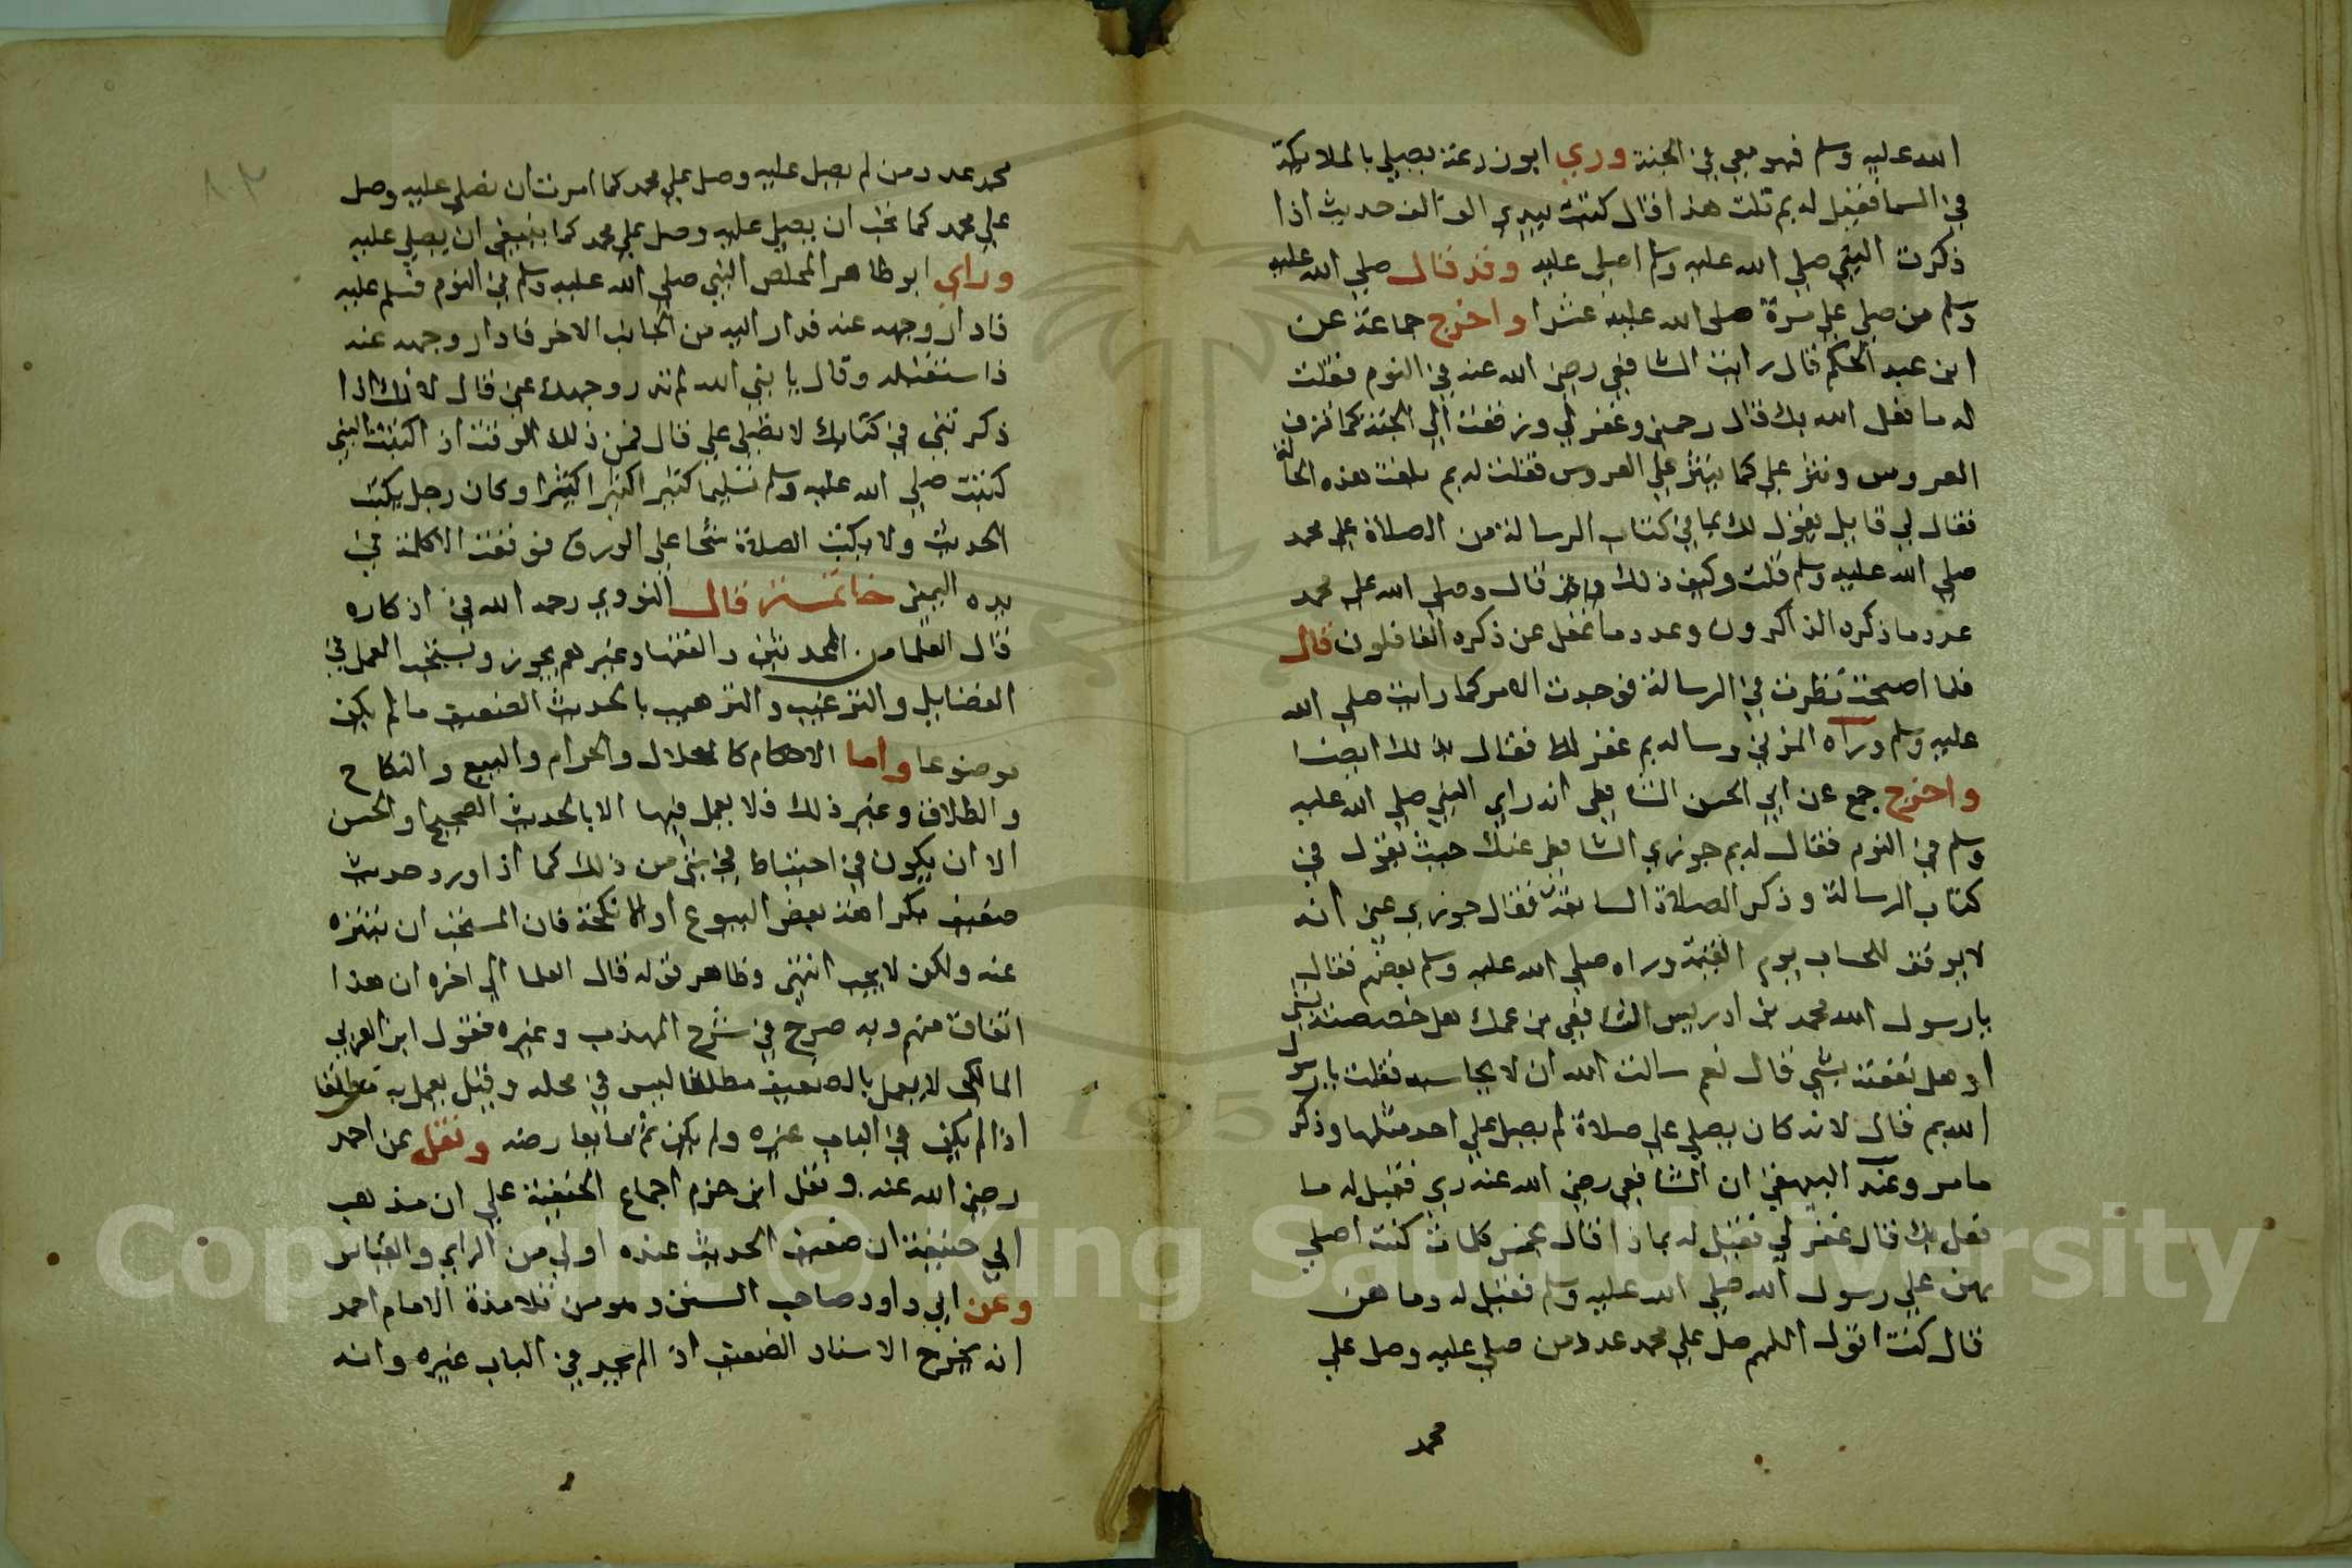 الله عليه وسلم فهو معي في الجنة وري ابو زرعة يصلي بالملايكة
في السما فقيل له بم نلت هذا قال كتبت بيدي الف الف حديث اذا
ذكرت النبي صلى الله عليه وسلم اصلي عليه وقد قال صلي الله عليه
وسلم من صلي علي مرة صلى الله عليه عشرا واخرج جماعة عن
ابن عبد الحكم قال رايت الشافعي رضي الله عنه في النوم فقلت
له ما فعل الله بك قال رحمني وغفر لي وزففت الي الجنة كما تزف
العروس ونثر علي كما ينثر علي العروس فقلت له بم بلغت هذه الحالة
فقال لي قايل يقول لك بما في كتاب الرسالة من الصلاة علي محمد
صلي الله عليه وسلم قلت وكيف ذلك قال وصلي الله علي محمد
عدد ما ذكره الذاكرون وعدد ما غفل عن ذكره الغافلون قال
فلما اصبحت نظرت في الرسالة فوجدت الامر كما رايت صلي الله
عليه وسلم وراه المزني وساله بم غفر لك فقال له ذلك ايضا
واخرج جمع عن ابي الحسن الشافعي انه راي النبي صلي الله عليه
وسلم في النوم فقال له بم جوزي الشافعي عنك حيث يقول في
كتاب الرسالة وذكر الصلاة السابقة فقال جوزي عني انه
لا يوقف للحساب يوم القيمة وراه صلي الله عليه وسلم بعضهم فقال
يا رسول الله محمد بن ادريس الشافعي بن عمك هل خصصته بشي
او هل نفعته بشي قال نعم سالت الله ان لا يحاسبه فقلت يا رسول
الله بم قال لانه كان يصلي علي صلاة لم يصل علي احد مثلها وذكر
ما مر وعند البيهقي ان الشافعي رضي الله عنه ري فقيل له ما
فعل بك قال غفر لي فقيل له بماذا قال بخمس كلمات كنت اصلي
بهن علي رسول الله صلي الله عليه وسلم فقيل له وما هن
قال كنت اقول اللهم صل علي محمد عدد من صلي عليه وصل علي
محمد
محمد عدد من لم يصل عليه وصل علي محمد كما امرت ان نصلي عليه وصل
علي محمد كما تحب ان يصلي عليه وصل علي محمد كما ينبغي ان يصلي عليه
وراي ابو طاهر المخلص النبي صلي الله عليه وسلم في النوم فسلم عليه
فادار وجهه عنه فدار اليه من الجانب الاخر فادار وجهه عنه
فاستقبله وقال يا نبي الله لم تدر وجهك عني قال لانك اذا
ذكرتني في كتابك لا تصلي علي قال فمن ذلك الوقت اذا كتبت النبي
كتبت صلي الله عليه وسلم تسليما كثيرا كثيرا كثيرا وكان رجل يكتب
الحديث ولا يكتب الصلاة شحا علي الورق فوقعت الاكلة في
يده اليمني خاتمة قال النووي رحمه الله في اذكاره
قال العلما من المحدثين والفقها وغيرهم يجوز ويستحب العمل في
الفضايل والترغيب والترهيب بالحديث الضعيف ما لم يكن
موضوعا واما الاحكام كالحلال والحرام والبيع والنكاح
والطلاق وغير ذلك فلا يعمل فيها الا بالحديث الصحيح او الحسن
الا ان يكون في احتياط في شي من ذلك كما اذا ورد حديث
ضعيف بكراهة بعض البيوع او الانكحة فان المستحب ان يتنزه
عنه ولكن لا يجب انتهى وظاهر قوله قال العلما الي اخره ان هذا
اتفاق منهم وبه صرح في شرح المهذب وغيره فقول ابن العربي
المالكي لا يعمل بالضعيف مطلقا ليس في محله وقيل يعمل به مطلقا
اذا لم يكن في الباب غيره ولم يكن ثم ما يعارضه ونقل عن احمد
رضي الله عنه ونقل ابن حزم اجماع الحنفية علي ان مذهب
ابي حنيفة ان ضعيف الحديث عنده اولي من الراي والقياس
وعن ابي داود صاحب السنن وهو من تلامذة الامام احمد
انه يخرج الاسناد الضعيف اذا لم يجد في الباب غيره وانه
Copyright © King Saud University